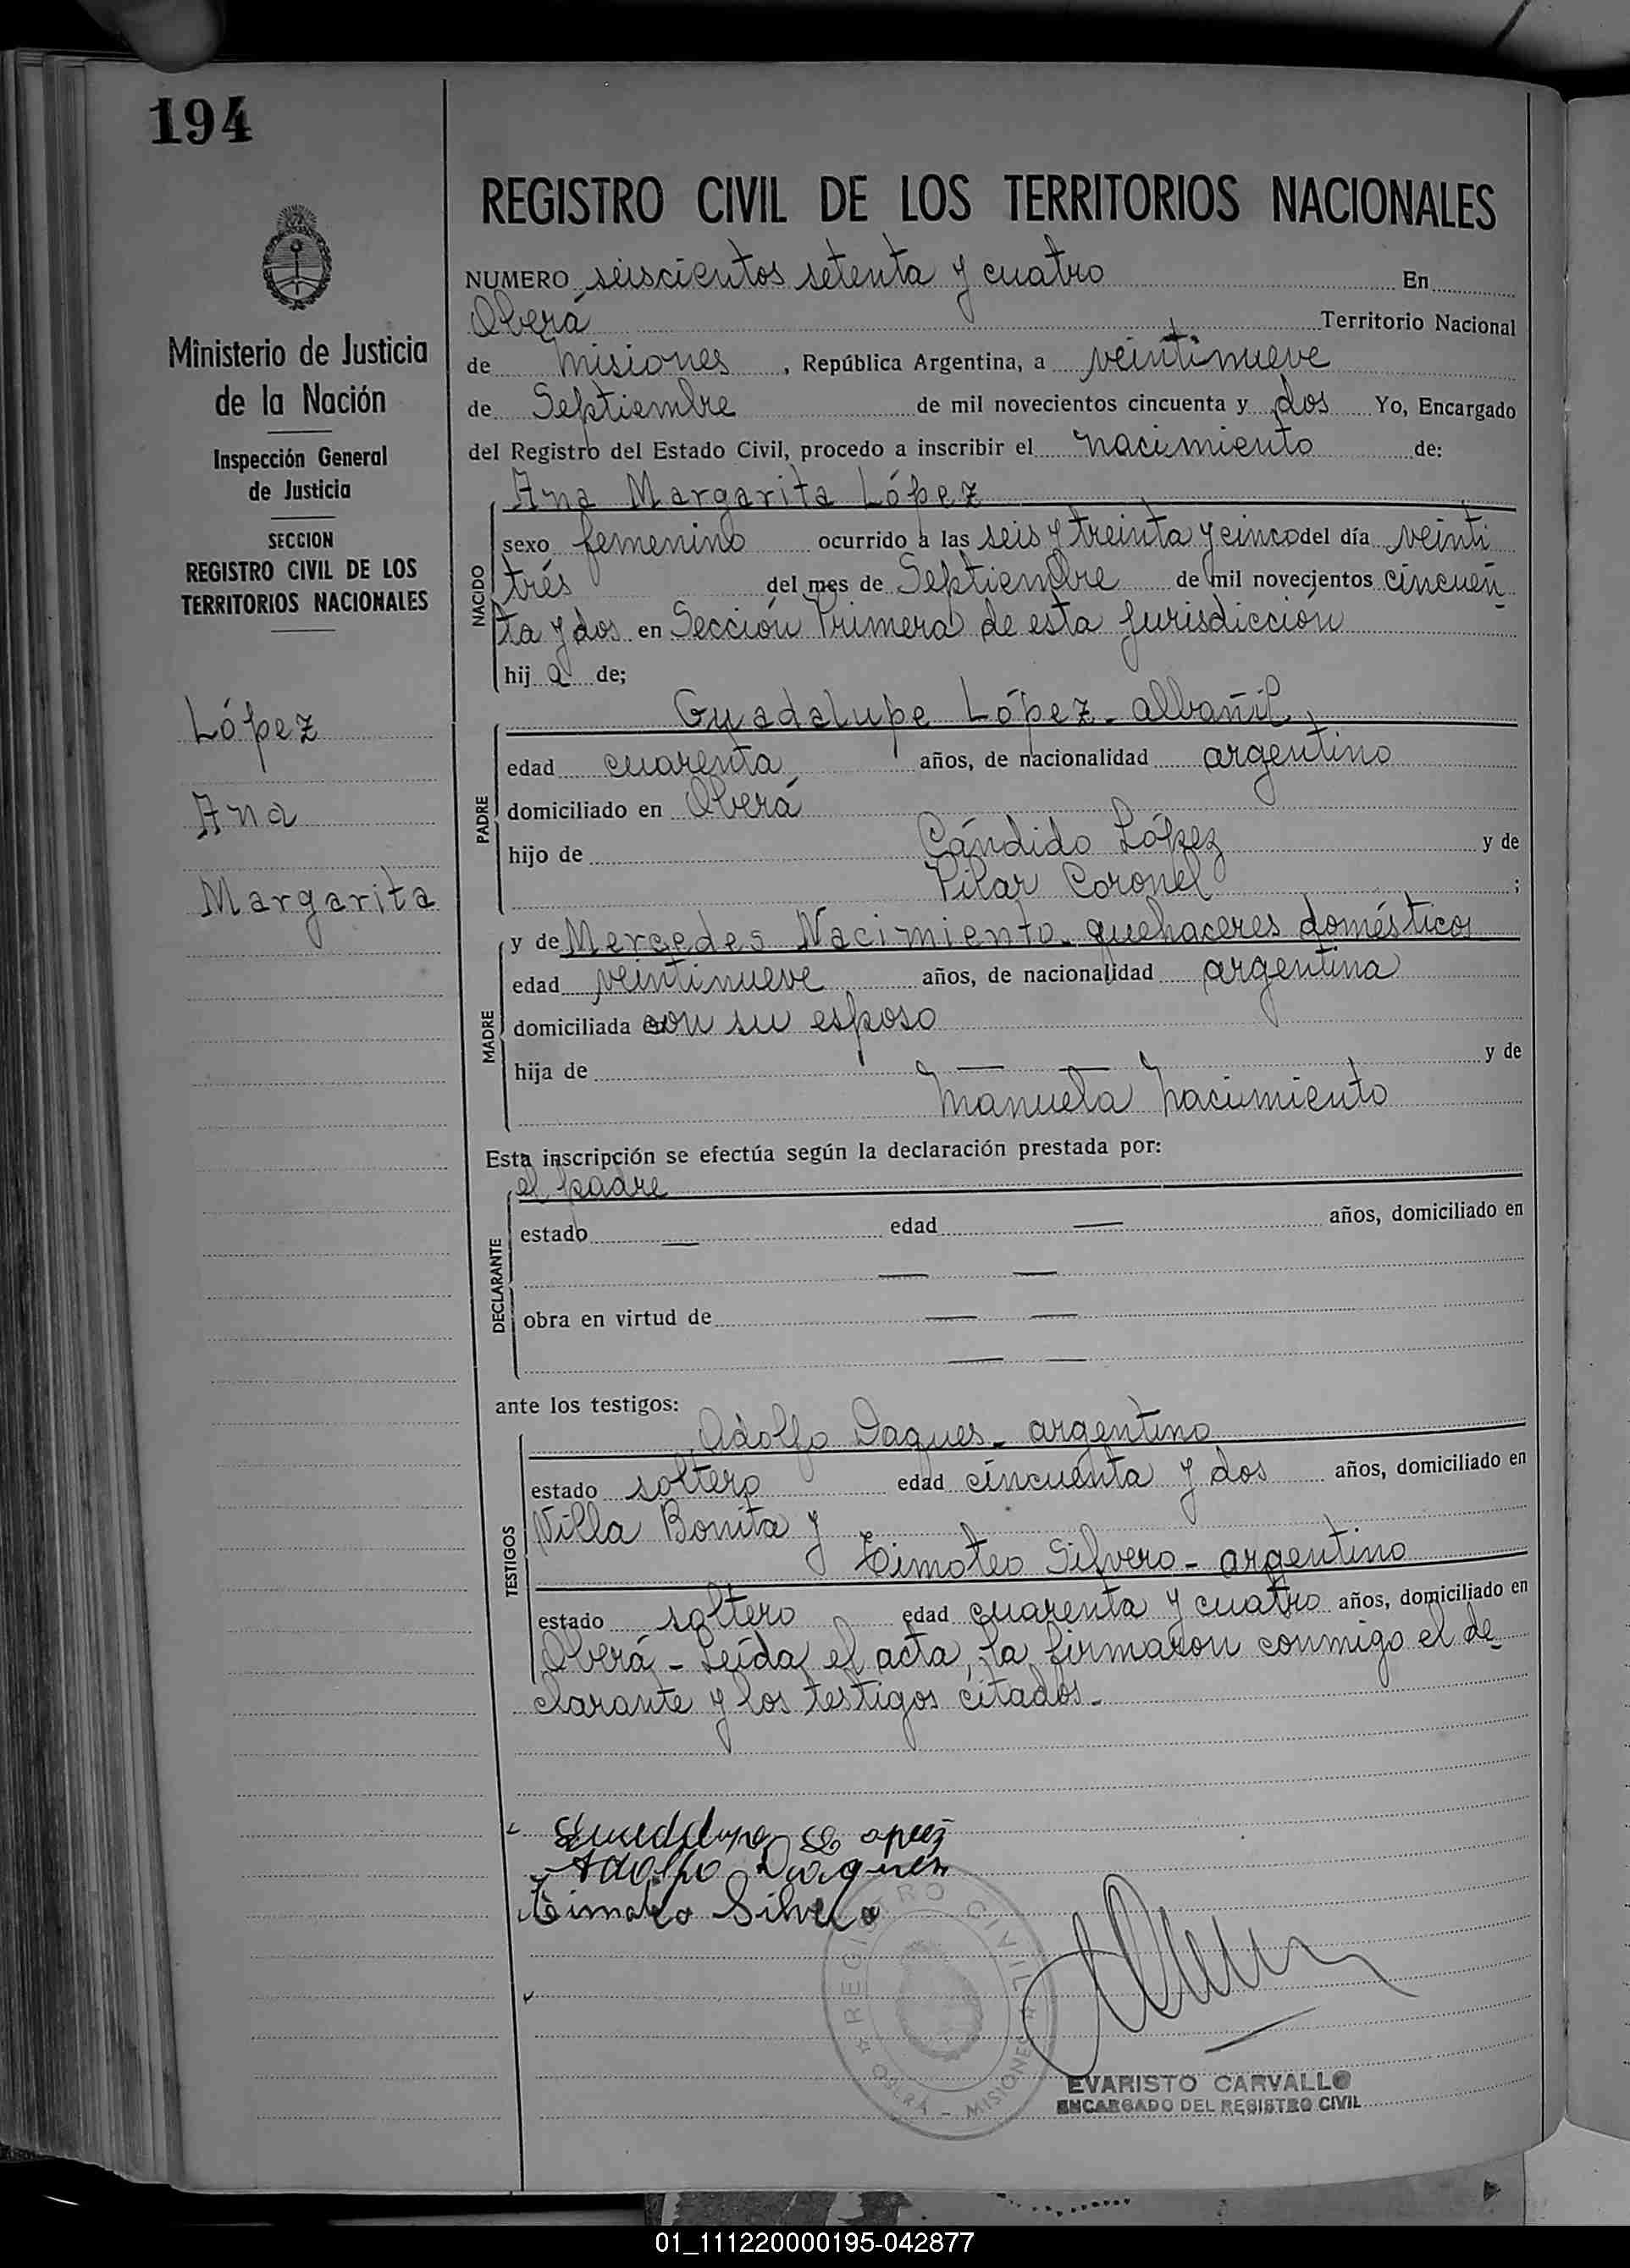 194
REGISTRO CIVIL DE LOS TERRITORIOS NACIONALES
Ministerio de Justicia
de la Nación
Inspección General
de Justicia
SECCION
REGISTRO CIVIL DE LOS
TERRITORIOS NACIONALES
López
Ana
Margarita
NUMERO seiscientos setenta y cuatro En
Oberá Territorio Nacional
de Misiones, República Argentina, a veintinueve
de Septiembre de mil novecientos cincuenta y dos Yo, Encargado
del Registro del Estado Civil, procedo a inscribir el nacimiento de:
NACIDO
Ana Margarita López
sexo femenino ocurrido a las seis y treinta y cinco del día veinti
trés del mes de Septiembre de mil novecientos cincuen
ta y dos en Sección Primera de esta jurisdicción
hij a de;
PADRE
Guadalupe López - albañil
edad cuarenta años, de nacionalidad argentino
domiciliado en Oberá
hijo de Cándido López y de
Pilar Coronel ;
MADRE
y de Mercedes Nacimiento - quehaceres domésticos
edad veintinueve años, de nacionalidad argentina
domiciliada con su esposo
hija de — — y de
Manuela Nacimiento
Esta inscripción se efectúa según la declaración prestada por:
DECLARANTE
el padre
estado — edad — años, domiciliado en
— —
obra en virtud de — —
— —
ante los testigos:
TESTIGOS
Adolfo Daques - argentino
estado soltero edad cincuenta y dos años, domiciliado en
Villa Bonita y
Timoteo Silvero - argentino
estado soltero edad cuarenta y cuatro años, domiciliado en
Oberá - Leída el acta, la firmaron conmigo el de
clarante y los testigos citados -
Adolfo Daques
Timoteo Silvero
REGISTRO CIVIL
OBERÁ - MISIONES
EVARISTO CARVALLO
ENCARGADO DEL REGISTRO CIVIL
01_111220000195-042877